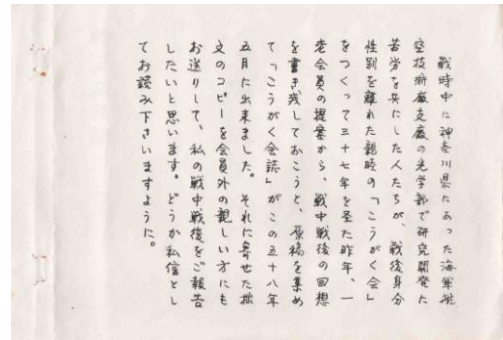 戦時中に神奈川県にあった海軍航
空技術廠支廠の光学部で研究開発に
苦労を共にした人たちが、戦後身分
性別を離れた親睦の「こうがく会」
をつくって三十七年を経た昨年、一
老会員の提案から、戦中戦後の回想
を書き残しておこうと、原稿を集め
て「こうがく会誌」がこの五十八年
五月に出来ました。それに寄せた拙
文のコピーを会員外の親しい方にも
お送りして、私の戦中戦後をご報告
したいと思います。どうか私信とし
てお読み下さいますように。